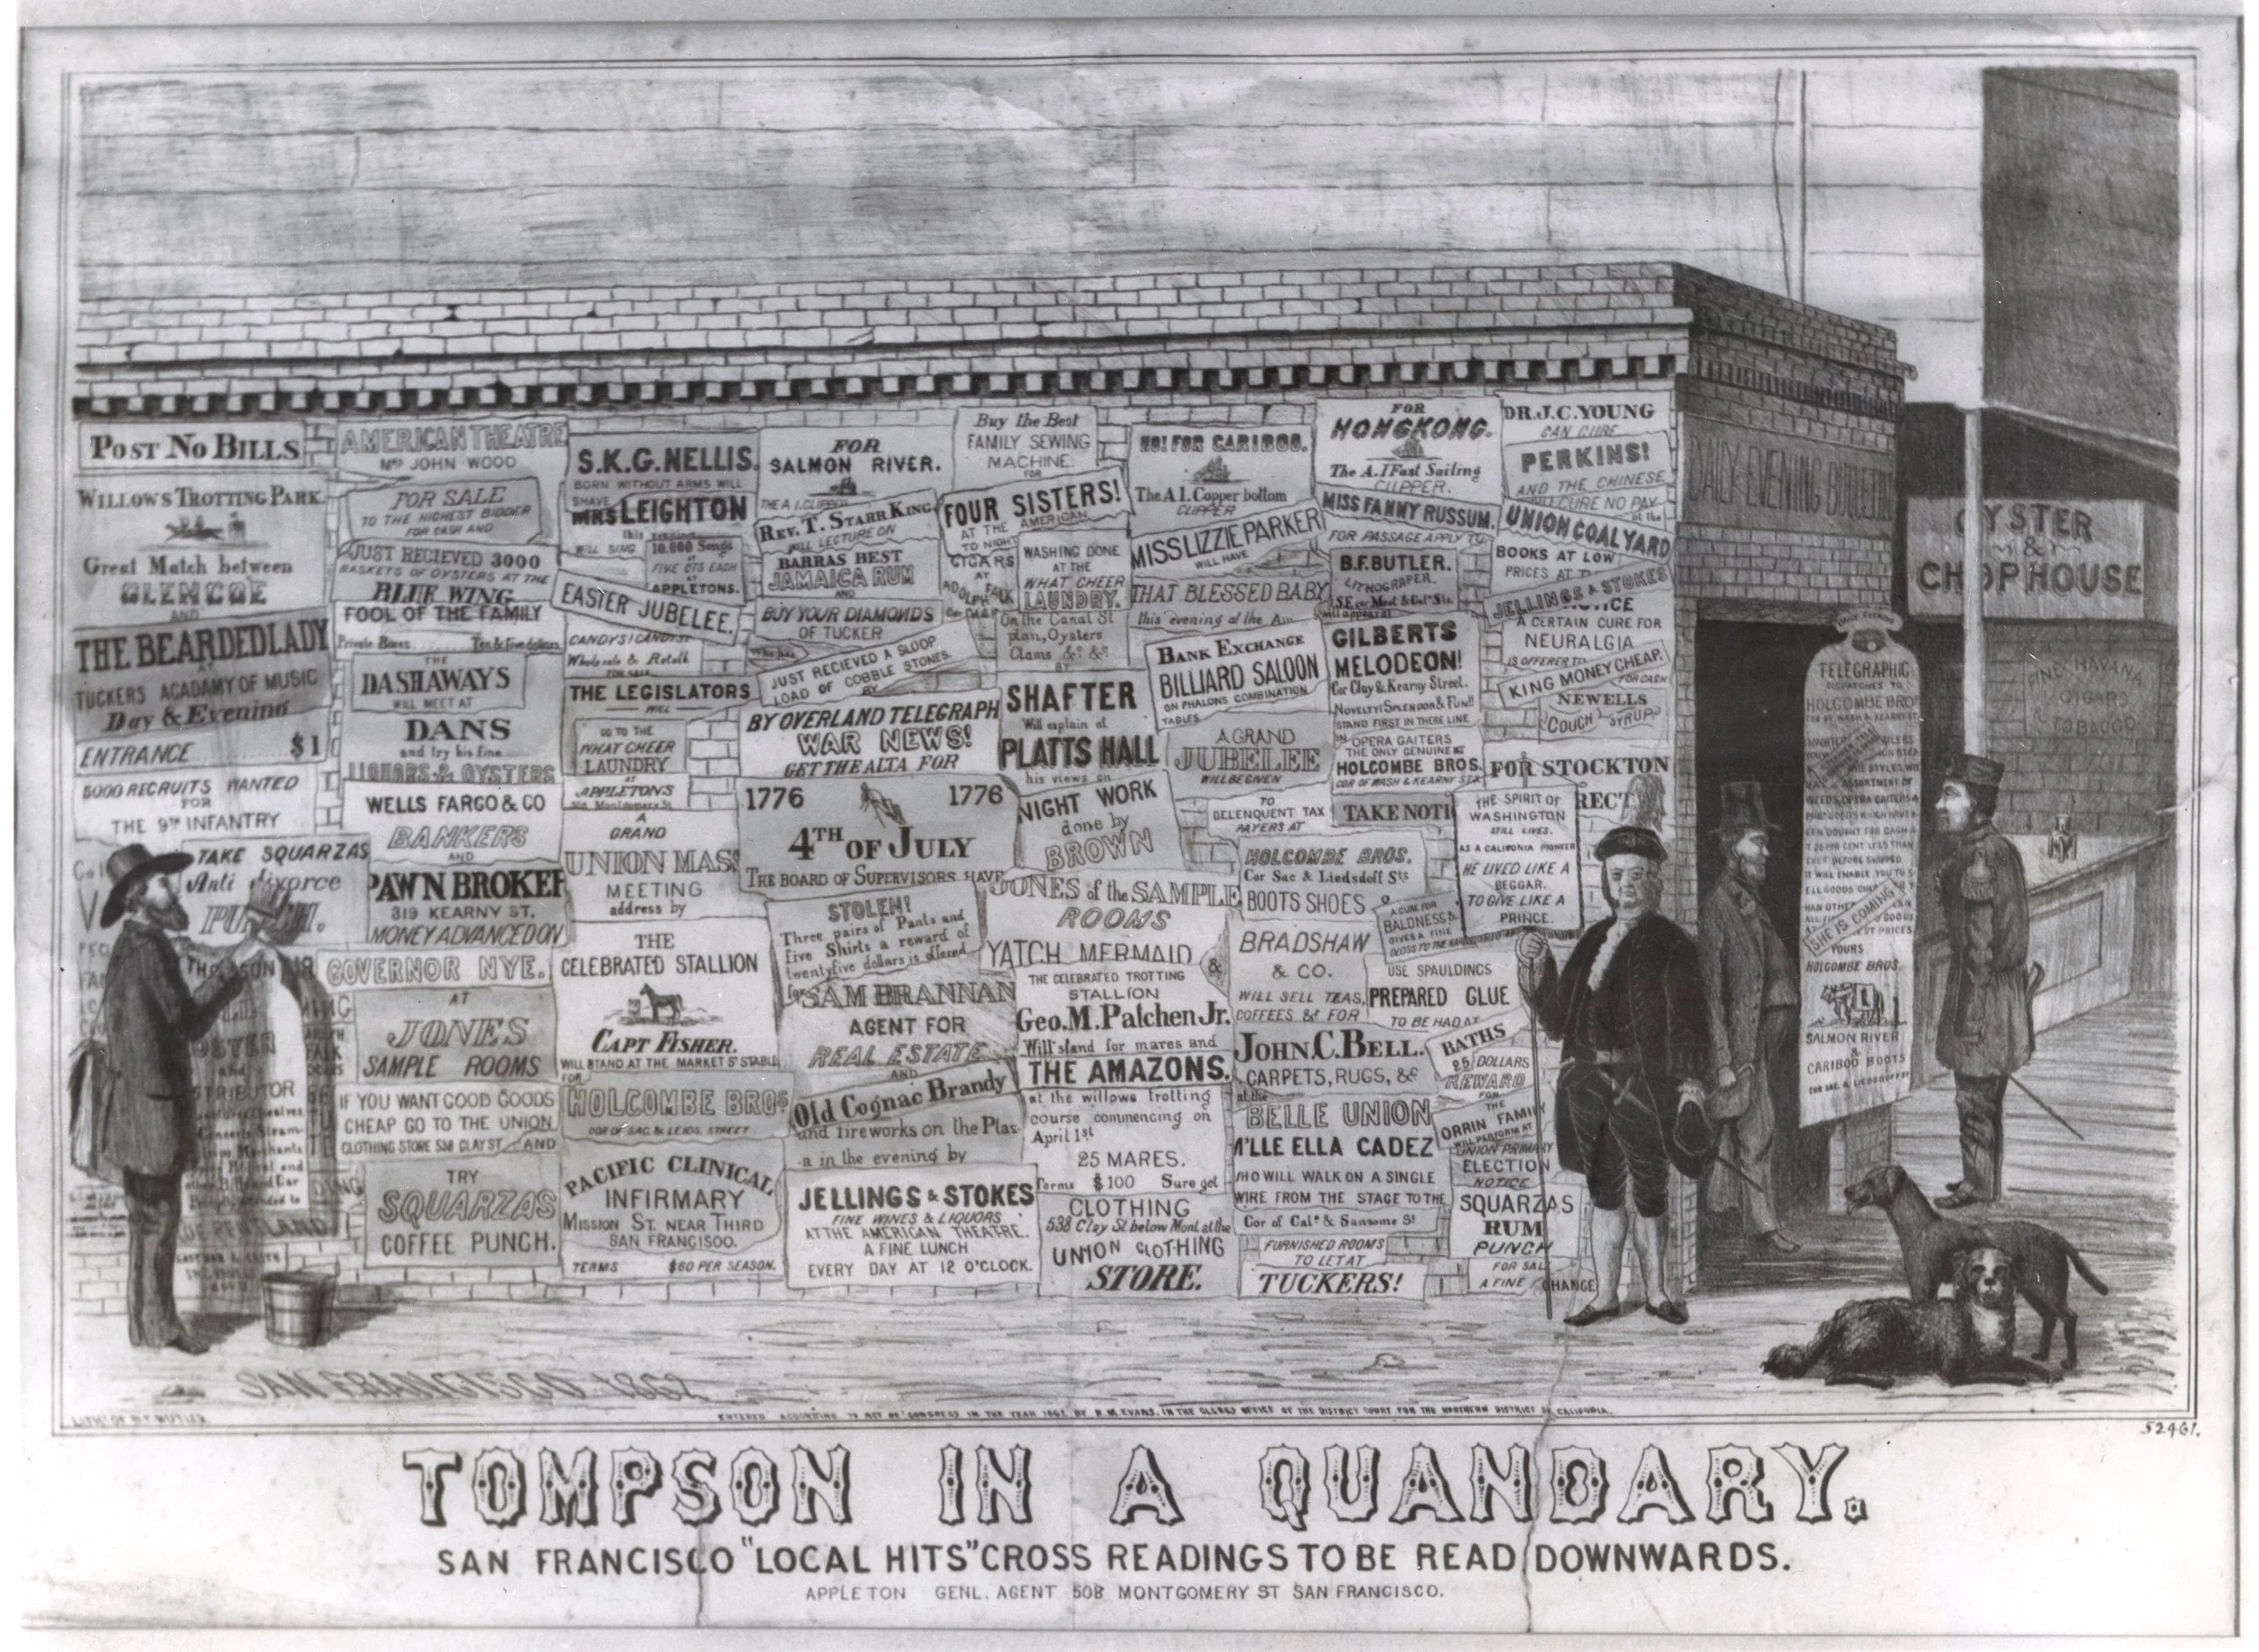 POST NO BILLS
WILLOWS TROTTING PARK.
Great Match between
GLENCOE
AND
THE BEARDED LADY
AT
TUCKERS ACADAMY OF MUSIC
Day & Evening
ENTRANCE ........ $1
5000 RECRUITS WANTED
FOR
THE 9TH INFANTRY
TAKE SQUARZAS
Anti divorce
PUNCH.
AMERICAN THEATRE
MRS JOHN WOOD
FOR SALE
TO THE HIGHEST BIDDER
FOR CASH AND
JUST RECIEVED 3000
BASKETS OF OYSTERS AT THE
BLUE WING
FOOL OF THE FAMILY
Private Boxes ....... Ten & Five dollars
THE
DASHAWAYS
WILL MEET AT
DANS
and try his fine
LIQUORS & OYSTERS
WELLS FARGO & CO
BANKERS
AND
PAWN BROKER
319 KEARNY ST.
MONEY ADVANCED ON
GOVERNOR NYE.
AT
JONES
SAMPLE ROOMS
IF YOU WANT GOOD GOODS
CHEAP GO TO THE UNION
CLOTHING STORE 538 CLAY ST AND
TRY
SQUARZAS
COFFEE PUNCH.
S.K.G. NELLIS.
BORN WITHOUT ARMS WILL
SHAVE
MRS LEIGHTON
this evening
WILL SING
10.000 Songs
AT
FIVE CTS EACH
AT
APPLETONS.
EASTER JUBELEE.
CANDYS! CANDYS!
Wholesale & Retail
FOR SALE
THE LEGISLATORS
WILL
GO TO THE
WHAT CHEER
LAUNDRY
AT
APPLETONS
508 Montgomery St
A
GRAND
UNION MASS
MEETING
address by
THE
CELEBRATED STALLION
CAPT FISHER.
WILL STAND AT THE MARKET ST STABLE
FOR
HOLCOMBE BROS
COR OF SAC. & LEIDS. STREET
PACIFIC CLINICAL
INFIRMARY
MISSION ST. NEAR THIRD
SAN FRANCISCO.
TERMS $60 PER SEASON.
FOR
SALMON RIVER.
THE A.1. CLIPPER
REV. T. STARR KING
WILL LECTURE ON
BARRAS BEST
JAMAICA RUM
AND
BUY YOUR DIAMONDS
OF TUCKER
Who has
JUST RECIEVED A SLOOP
LOAD OF COBBLE STONES.
BY
BY OVERLAND TELEGRAPH
WAR NEWS!
GET THE ALTA FOR
1776 1776
4TH OF JULY
THE BOARD OF SUPERVISORS HAVE
STOLEN!
Three pairs of Pants and
five Shirts a reward of
twentyfive dollars is offered
for
SAM BRANNAN
AGENT FOR
REAL ESTATE
AND
Old Cognac Brandy
and fireworks on the Plas-
a in the evening by
JELLINGS & STOKES
FINE WINES & LIQUORS
AT THE AMERICAN THEATRE.
A FINE LUNCH
EVERY DAY AT 12 O'CLOCK.
Buy the Best
FAMILY SEWING
MACHINE.
FOR
FOUR SISTERS!
AT THE AMERICAN
TO NIGHT
CIGARS
AT
ADOLPH FALK
WASHING DONE
AT THE
WHAT CHEER
LAUNDRY.
On the Canal St
plan, Oysters
Clams &c &c
BY
SHAFTER
Will explain at
PLATTS HALL
his views on
NIGHT WORK
done by
BROWN
JONES of the SAMPLE
ROOMS
YATCH MERMAID
&
THE CELEBRATED TROTTING
STALLION
Geo. M. Patchen Jr.
Will stand for mares and
THE AMAZONS.
at the willows trotting
course commencing on
April 1st
25 MARES.
Terms $100 Sure get
CLOTHING
538 Clay St below Mont at the
UNION CLOTHING
STORE.
HO! FOR CARIBOO.
The A.1. Copper bottom
CLIPPER
MISS LIZZIE PARKER
WILL HAVE
THAT BLESSED BABY
this evening at the Am
BANK EXCHANGE
BILLIARD SALOON
ON PHALONS COMBINATION
TABLES
A GRAND
JUBELEE
WILL BE GIVEN
TO
DELENQUENT TAX
PAYERS AT
HOLCOMBE BROS.
Cor Sac & Liedsdoff Sts
BOOTS SHOES
BRADSHAW
& CO.
WILL SELL TEAS,
COFFEES &c FOR
JOHN. C. BELL.
CARPETS, RUGS, &c
at the
BELLE UNION
M'LLE ELLA CADEZ
WHO WILL WALK ON A SINGLE
WIRE FROM THE STAGE TO THE
Cor of Cala & Sansome St
FURNISHED ROOMS
TO LET AT
TUCKERS!
FOR
HONGKONG.
The A.1 Fast Sailing
CLIPPER.
MISS FANNY RUSSUM.
FOR PASSAGE APPLY TO
B.F. BUTLER.
LITHOGRAPER.
S E cor Mont & Cala Sts.
will appear at
GILBERTS
MELODEON!
Cor Clay & Kearny Street.
NOVELTY! SPLENDOR & FUN!!
STAND FIRST IN THERE LINE
IN OPERA GAITERS
THE ONLY GENUINE AT
HOLCOMBE BROS.
COR OF WASH & KEARNY STS
TAKE NOTI
A CURE FOR
BALDNESS &
GIVES A FINE
GLOSS TO THE
USE SPAULDINGS
PREPARED GLUE
TO BE HAD AT
BATHS
25 DOLLARS
REWARD
FOR
THE
ORRIN FAMILY
WILL PERFORM AT
UNION PRIMARY
ELECTION
NOTICE
SQUARZAS
RUM
PUNCH
FOR SAL
A FINE CHANGE
DR. J. C. YOUNG
CAN CURE
PERKINS!
AND THE CHINESE
NO CURE NO PAY
at the
UNION COAL YARD
BOOKS AT LOW
PRICES AT
JELLINGS & STOKES
A CERTAIN CURE FOR
NEURALGIA
IS OFFERED TO
KING MONEY CHEAP.
FOR CASH
NEWELLS
COUCH SYRUP
FOR STOCKTON
RECT
THE SPIRIT OF
WASHINGTON
STILL LIVES.
AS A CALIFONIA PIONEER
HE LIVED LIKE A
BEGGAR.
TO GIVE LIKE A
PRINCE.
DAILY EVENING BULLETIN
OYSTER
&
CHOP HOUSE
FINE HAVANA
CIGARS
& TOBACCO
TELEGRAPHIC
DISPATCHES TO
HOLCOMBE BRO'
SHE IS COMING
YOURS
HOLCOMBE BROS.
SALMON RIVER
&
CARIBOO BOOTS
SAN FRANCISCO 1862
ENTERED ACCORDING TO ACT OF CONGRESS IN THE YEAR 1862 BY R. M. EVANS. IN THE CLERKS OFFICE OF THE DISTRICT COURT FOR THE NORTHERN DISTRICT OF CALIFORNIA.
52461.
TOMPSON IN A QUANDARY.
SAN FRANCISCO "LOCAL HITS" CROSS READINGS TO BE READ DOWNWARDS.
APPLETON GENL. AGENT 508 MONTGOMERY ST SAN FRANCISCO.